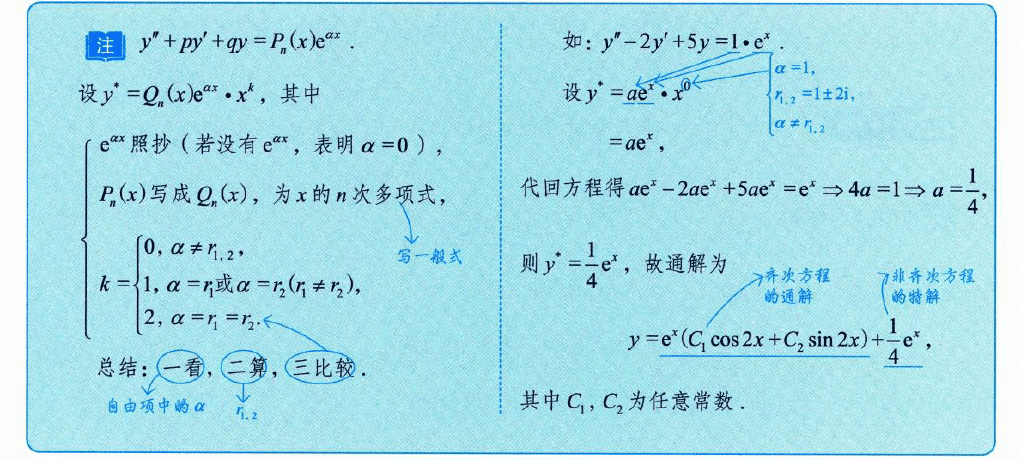 注 y″+py′+qy=Pₙ(x)e^{αx}.
设y*=Qₙ(x)e^{αx}·x^k，其中
e^{αx}照抄（若没有e^{αx}，表明α=0），
Pₙ(x)写成Qₙ(x)，为x的n次多项式，
写一般式
k={0, α≠r_{1,2},
1, α=r₁或α=r₂(r₁≠r₂),
2, α=r₁=r₂.
总结：一看，二算，三比较.
自由项中的α
r_{1,2}
如：y″-2y′+5y=1·e^x.
设y*=ae^x·x^0
α=1,
r_{1,2}=1±2i,
α≠r_{1,2}
=ae^x,
代回方程得ae^x-2ae^x+5ae^x=e^x⇒4a=1⇒a=1/4,
则y*=1/4 e^x，故通解为
齐次方程
的通解
非齐次方程
的特解
y=e^x(C₁cos2x+C₂sin2x)+1/4 e^x,
其中C₁,C₂为任意常数.